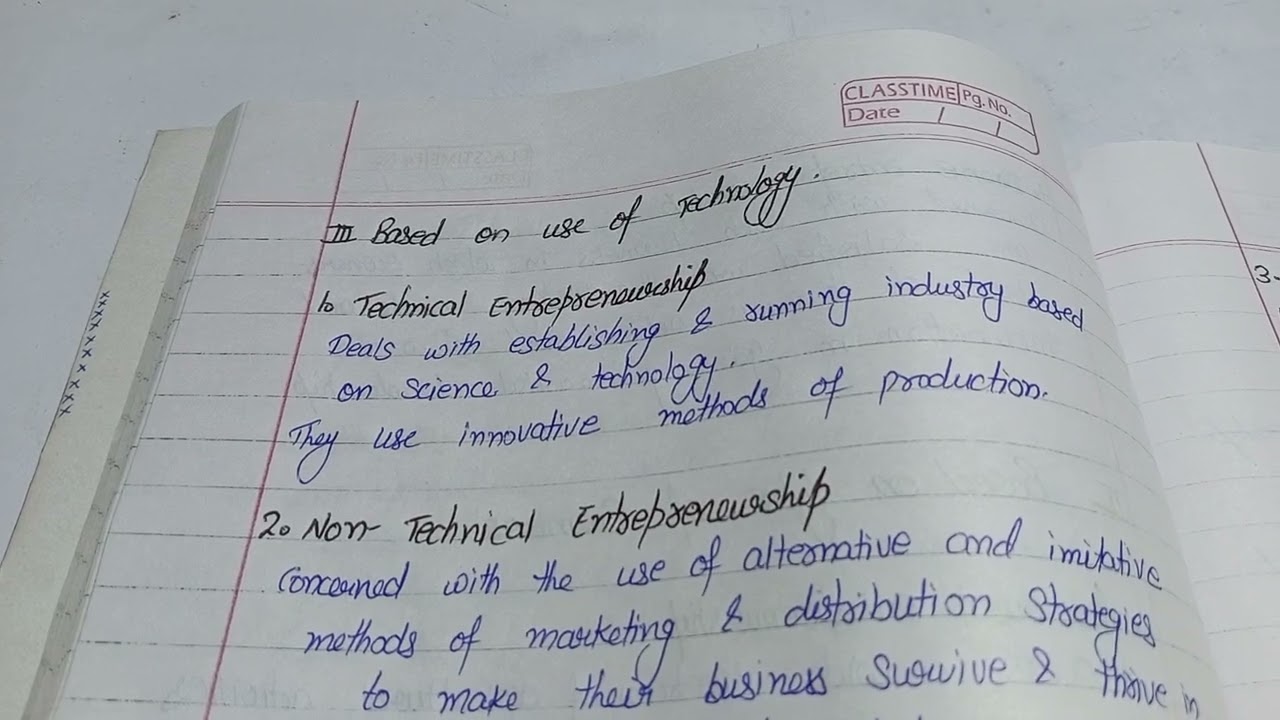 CLASSTIME Pg. No.
Date / /
III Based on use of Technology.
1. Technical Entrepreneurship
Deals with establishing & running industry based
on science & technology.
They use innovative methods of production.
2. Non- Technical Entrepreneurship
Concerned with the use of alternative and imitative
methods of marketing & distribution strategies
to make their business survive & thrive in
3-
xxxxxxxxxx